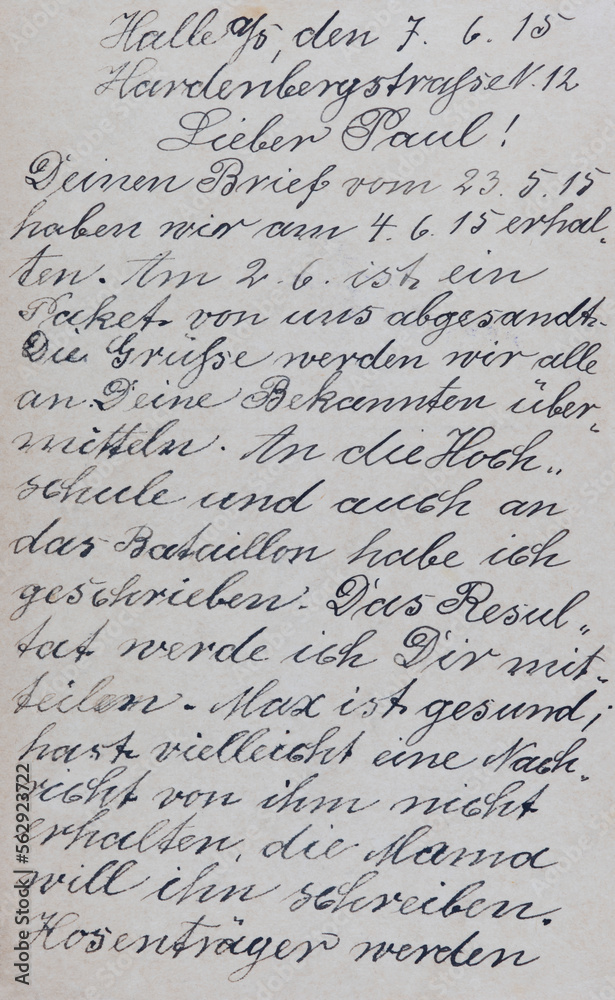 Halle a/S, den 7. 6. 15
Hardenbergstraße N. 12
Lieber Paul!
Deinen Brief vom 23. 5. 15
haben wir am 4. 6. 15 erhal„
ten. Am 2. 6. ist ein
Paket von uns abgesandt.
Die Grüße werden wir alle
an Deine Bekannten über„
mitteln. An die Hoch„
schule und auch an
das Bataillon habe ich
geschrieben. Das Resul„
tat werde ich Dir mit„
teilen. Max ist gesund,
hast vielleicht eine Nach„
richt von ihm nicht
erhalten, die Mama
will ihn schreiben.
Hosenträger werden
Adobe Stock | #562923722